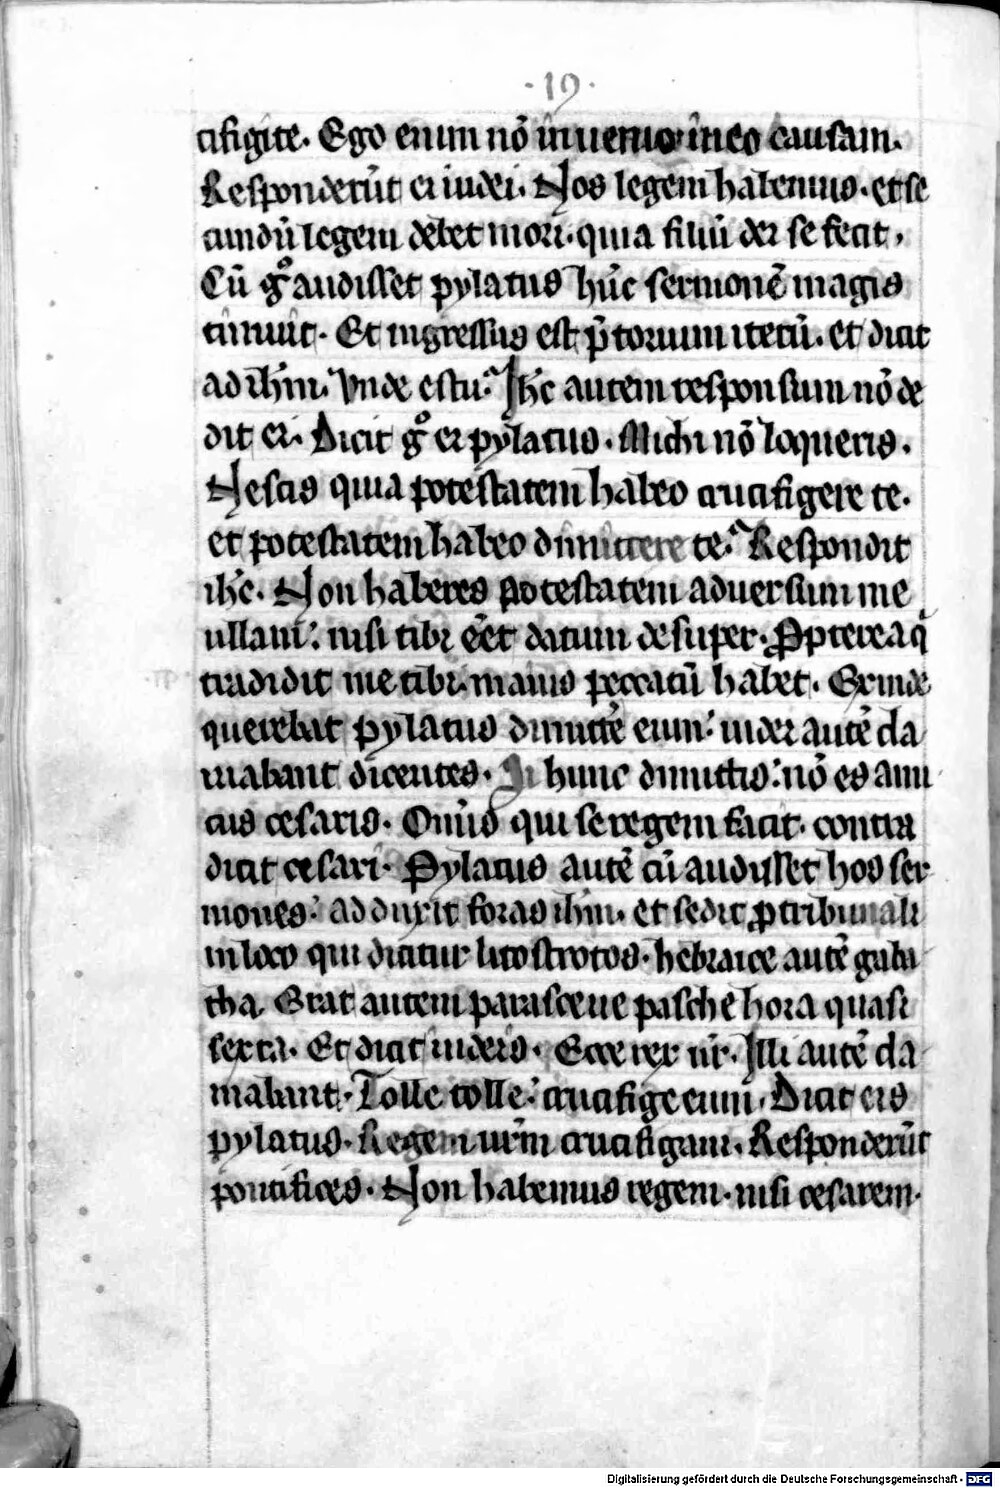 ·19·
cifigite. Ego enim nō inuenio in eo causam.
Responderūt ei iudei. Nos legem habemus. et se
cundū legem debet mori. quia filiū dei se fecit.
Cū gͦ audisset pylatus hūc sermonē magis
timuit. Et ingressus est p̄torium iterū. et dicit
ad ihm̄. Vnde es tu. Ihc̄ autem responsum nō de
dit ei. Dicit gͦ ei pylatus. Michi nō loqueris.
Nescis quia potestatem habeo crucifigere te.
et potestatem habeo dimittere te. Respondit
ihc̄. Non haberes potestatem aduersum me
ullam: nisi tibi eēt datum desuper. Ꝓpterea qͥ
tradidit me tibi. maius peccatū habet. Exinde
querebat pylatus dimitte͛ eum: iudei autē cla
mabant dicentes. Si hunc dimittis: nō es ami
cus cesaris. Omīs qui se regem facit. contra
dicit cesari. Pylatus autē cū audisset hos ser
mones: adduxit foras ihm̄. et sedit ꝓ tribunali
in loco qui dicitur litostrotos. hebraice autē gaba
tha. Erat autem parasceue pasche hora quasi
sexta. Et dicit iudeis. Ecce rex ur̄. Illi autē cla
mabant. Tolle tolle: crucifige eum. Dicit eis
pylatus. Regem urm̄ crucifigam. Responderūt
pontifices. Non habemus regem. nisi cesarem.
Digitalisierung gefördert durch die Deutsche Forschungsgemeinschaft - DFG